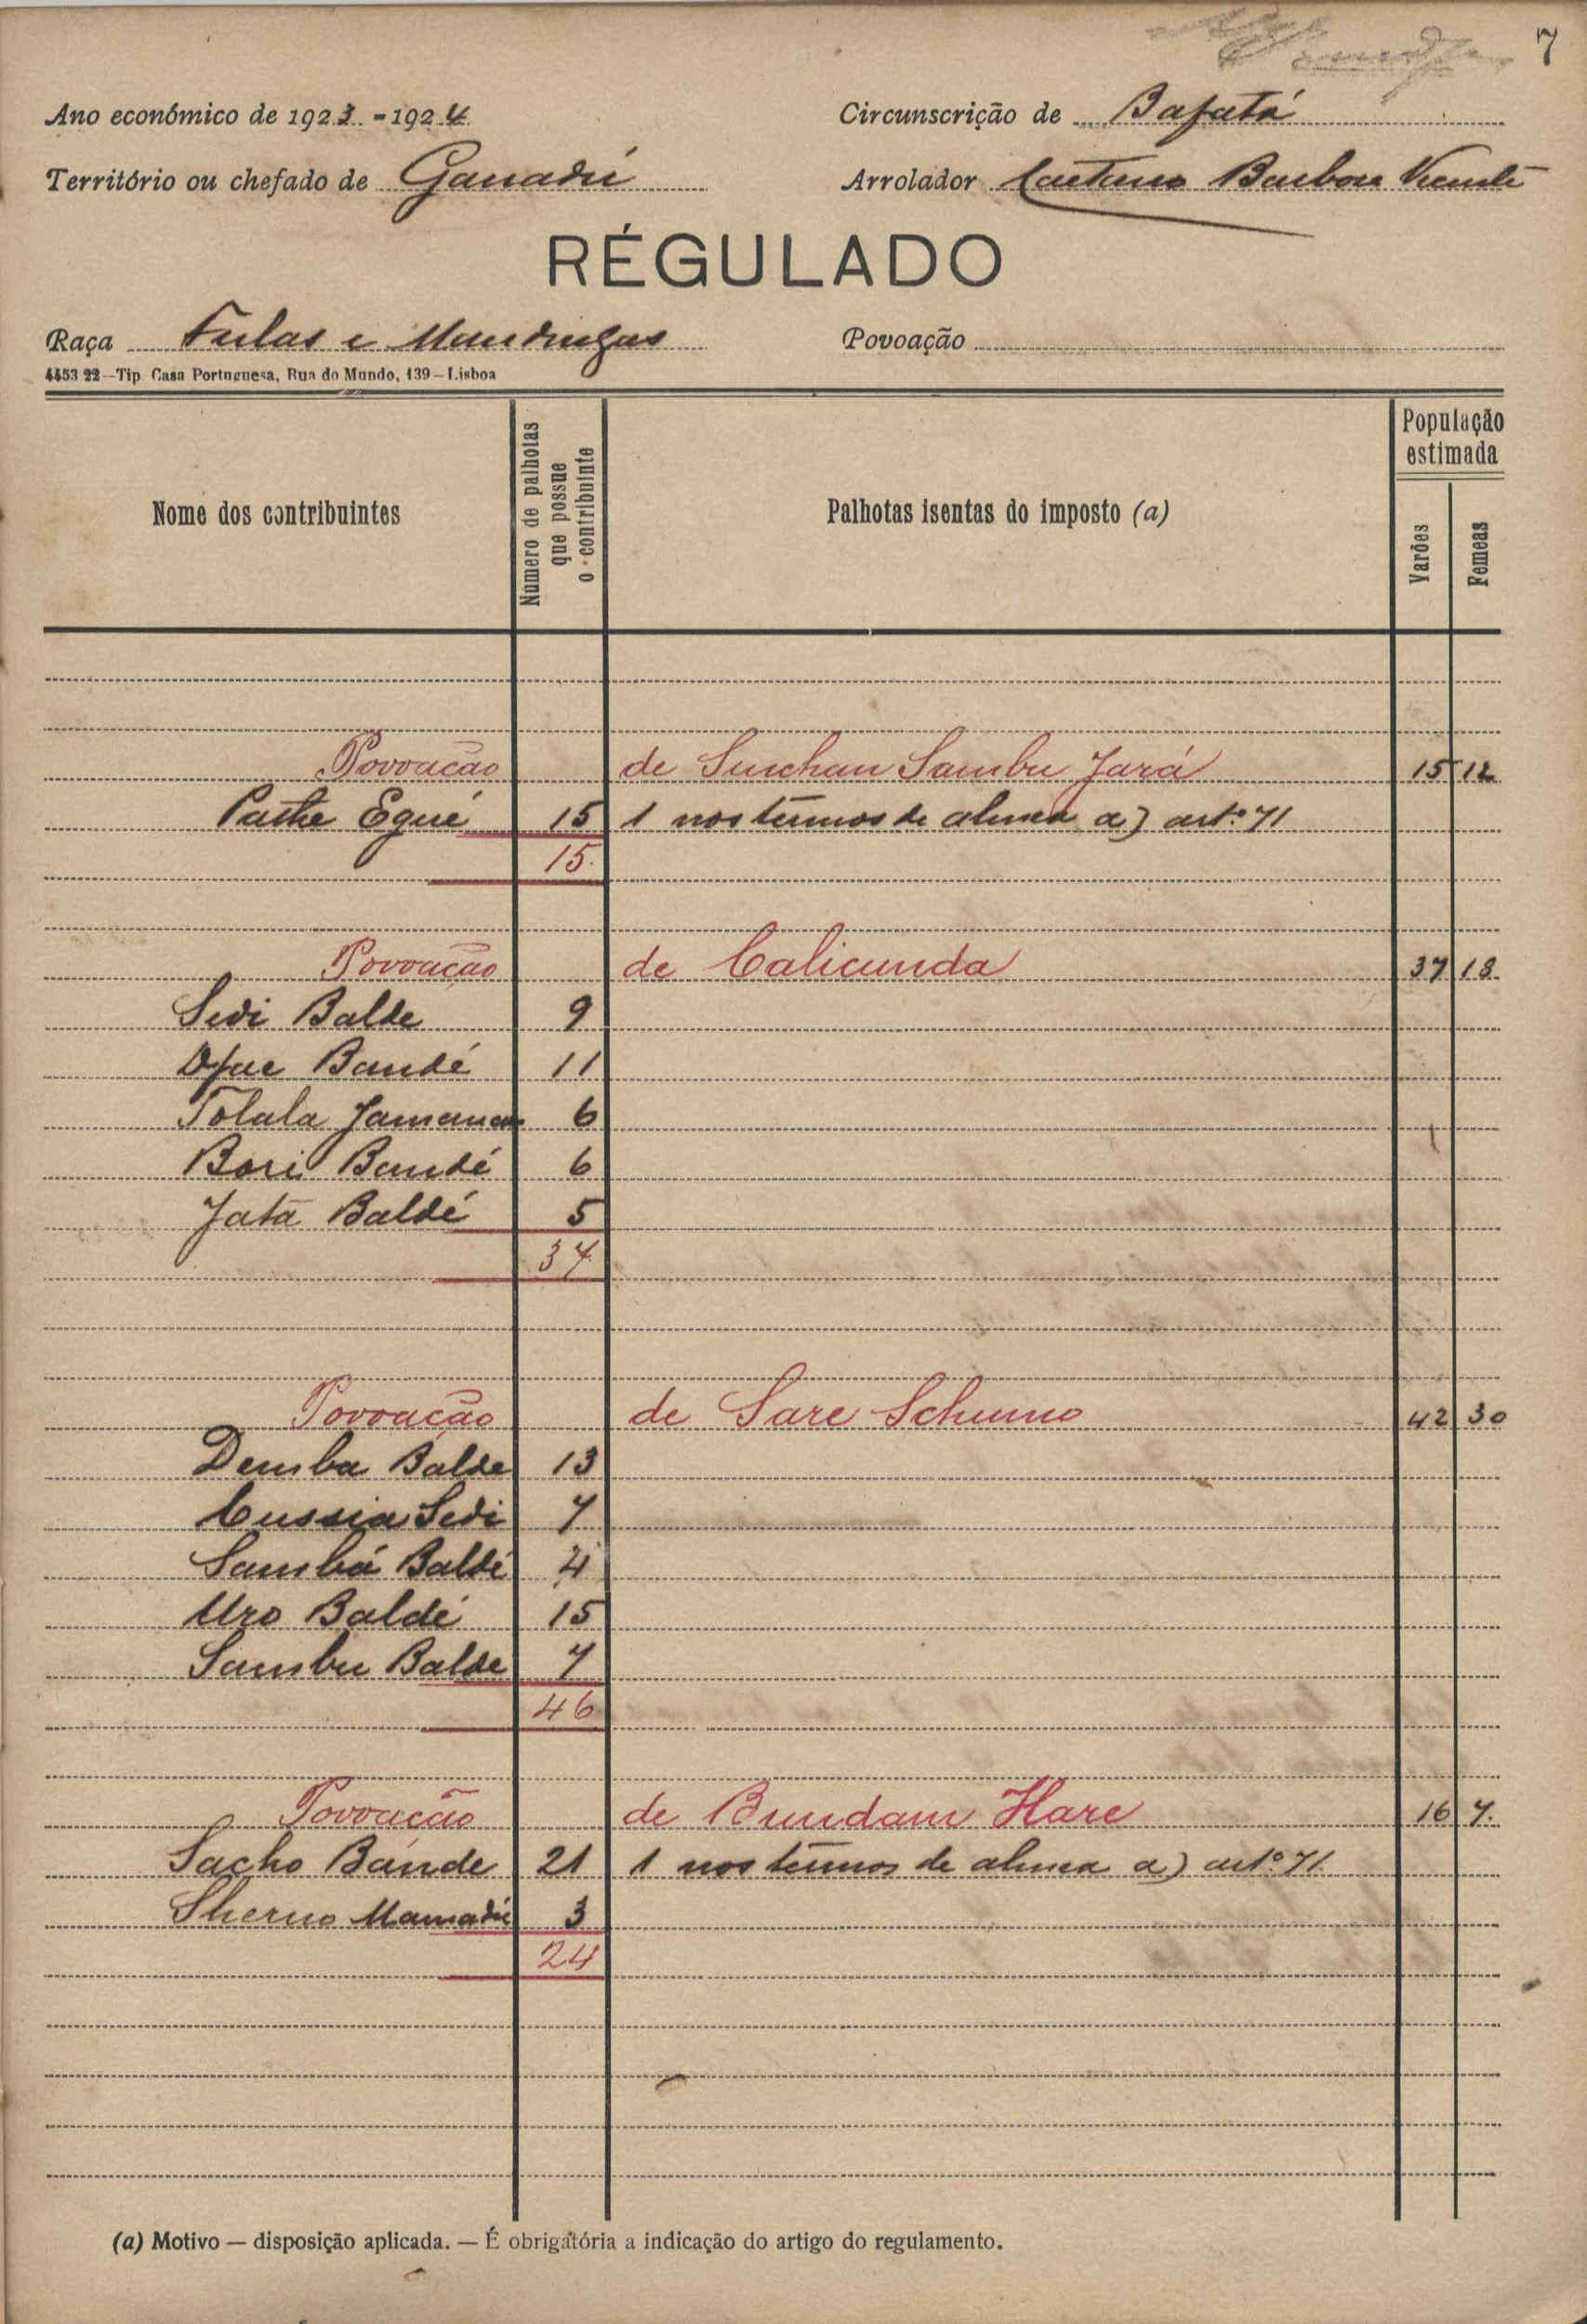 7
Ano económico de 1923-1924
Circunscrição de Bafatá
Território ou chefado de Ganadú
Arrolador Caetano Barbosa Vicente
RÉGULADO
Raça Fulas e Mandingas
Povoação
4453 22—Tip. Casa Portuguesa, Rua do Mundo, 139—Lisboa
Nome dos contribuintes
Numero de palhotas que possue o contribuinte
Palhotas isentas do imposto (a)
População estimada
Varões
Femeas
Povoação de Sinchan Sambu Jará 15 12
Pathe Egué 15 1 nos têrmos de alinea a) artº 71
15
Povoação de Calicunda 37 18
Sedi Balde 9
Bandé 11
Tolala 6
Bori Bandé 6
Jatá Baldé 5
37
Povoação de Sare Schumo 42 30
Demba Balde 13
Cussia Sedi 7
Sambá Baldé 4
Uro Baldé 15
Sambu Balde 7
46
Povoação de Bundam Hare 16 7
Sacho Bande 21 1 nos têrmos de alinea a) artº 71.
Sherno Mamadú 3
24
(a) Motivo — disposição aplicada. — É obrigatória a indicação do artigo do regulamento.